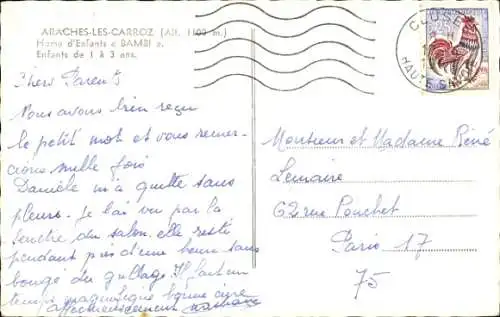 ARACHES-LES-CARROZ (Alt. 1103 m.)
Home d'Enfants « BAMBI »
Enfants de 1 à 3 ans.
Chers Parents
Nous avons bien reçu
le petit mot et vous remer-
cions mille fois
Danièle m'a quitté sans
pleurs. Je l'ai vu par la
fenêtre du salon. elle resté
pendant près d'une heure sans
bougé du grillage Il fait un
temps magnifique bonne
affectueusement
CLUSES
HAUTE SAVOIE
Monsieur et Madame René
Lemaire
62 rue Pouchet
Paris 17
75